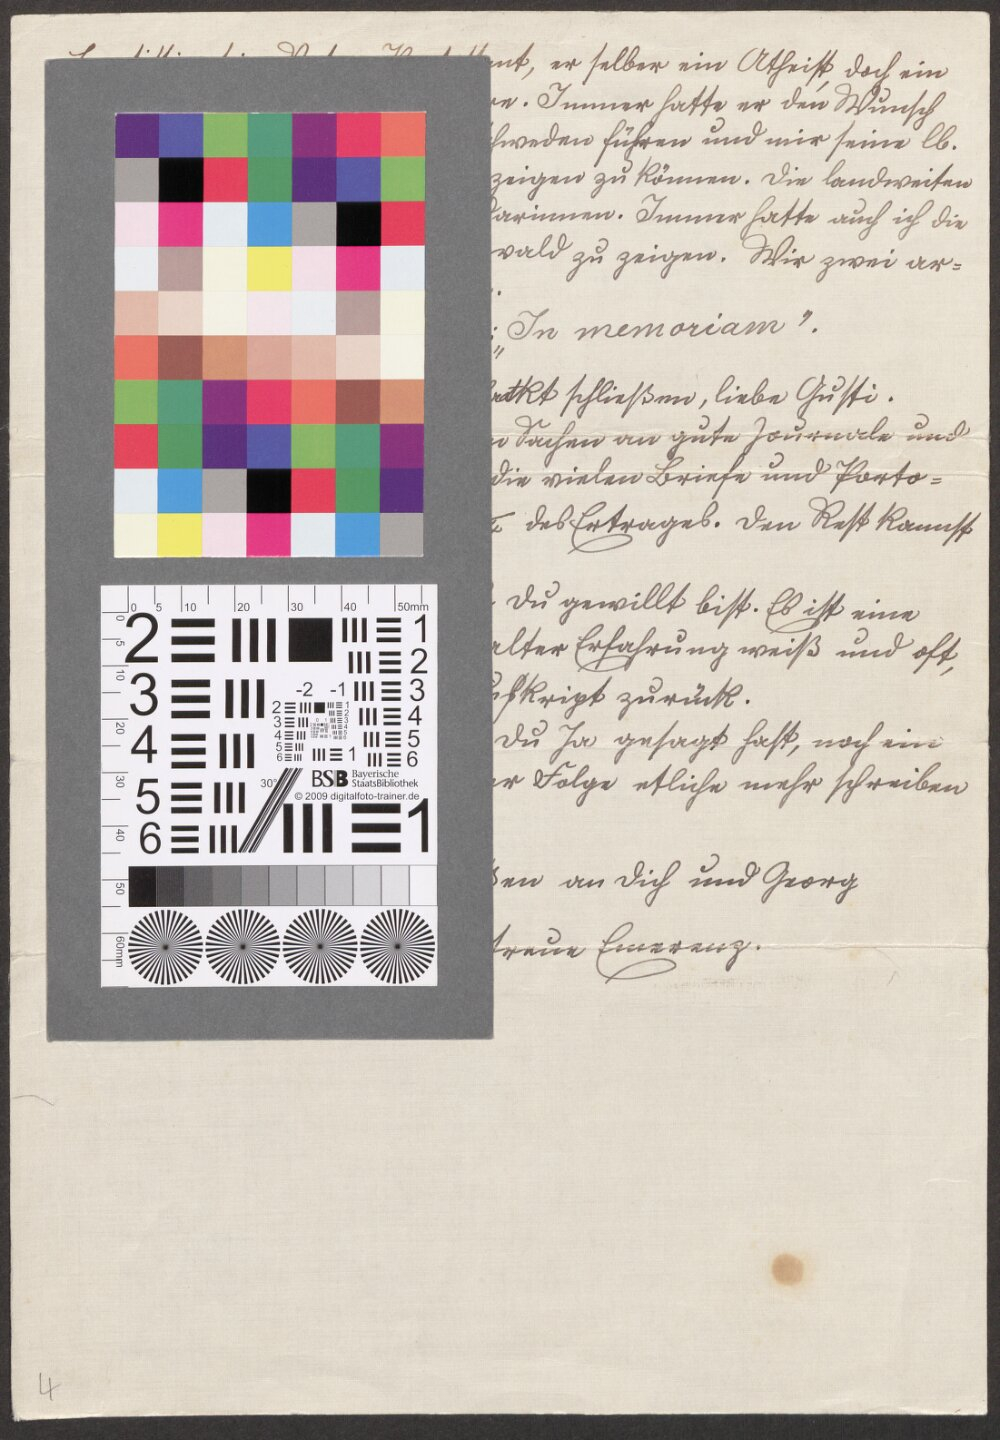 er selber ein Atheist, doch ein
Immer hatte er den Wunsch
führen und mir seine lb.
zeigen zu können. Die landweiten
Immer hatte auch ich die
zu zeigen. Wir zwei ar=
„In memoriam".
schließen, liebe Gusti.
Sachen an gute Journale und
die vielen Briefe und Porto=
des Ertrages. Den Rest kannst
Du gewillt bist. Es ist eine
alter Erfahrung weiß und oft,
zurück.
Du Ja gesagt hast, noch ein
Folge etliche mehr schreiben
an Dich und Georg
treue Emerenz.
4
0 5 10 20 30 40 50mm
0 5 10 20 30 40 50 60mm
2 3 4 5 6
1 2 3 4 5 6
-2 -1
2 3 4 5 6
1
30°
BSB Bayerische
StaatsBibliothek
© 2009 digitalfoto-trainer.de
1